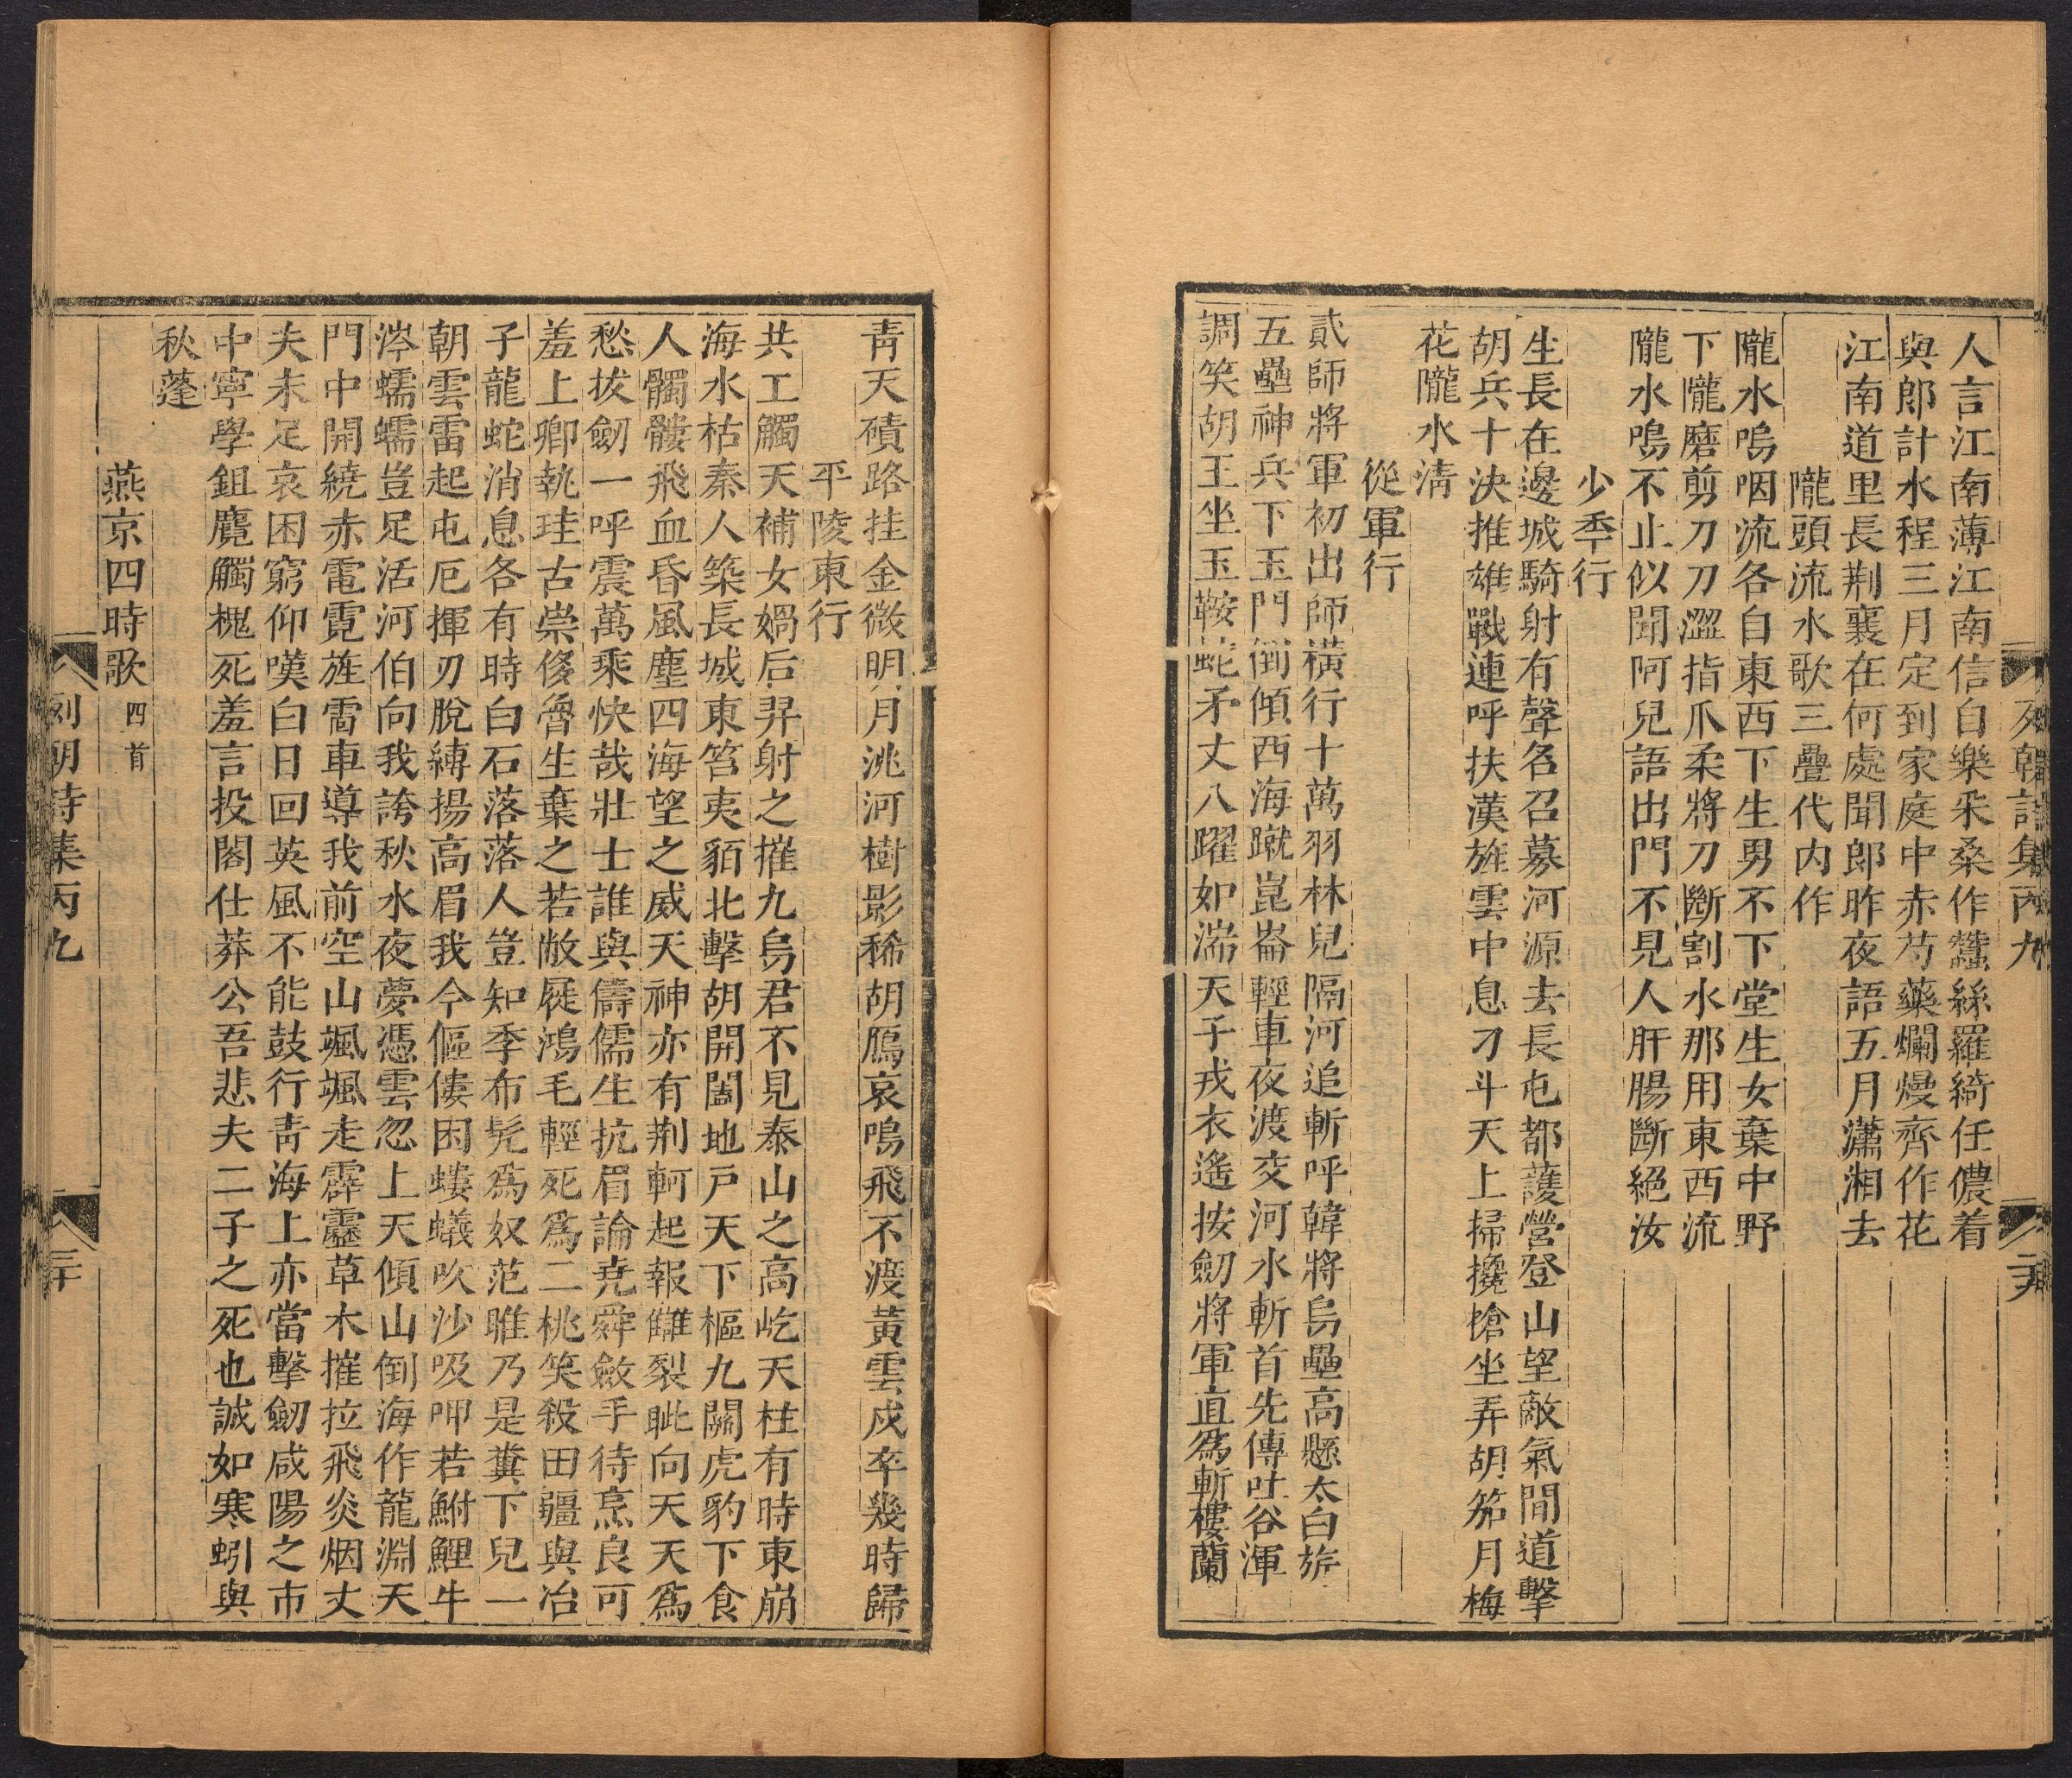 列朝詩集丙九
二十九
人言江南薄江南信自樂采桑作蠶絲羅綺任儂着
與郎計水程三月定到家庭中赤芍藥爛熳齊作花
江南道里長荆襄在何處聞郎昨夜語五月瀟湘去
隴頭流水歌三疊代內作
隴水嗚咽流各自東西下生男不下堂生女棄中野
下隴磨剪刀刀澀指爪柔將刀斷割水那用東西流
隴水鳴不止似聞阿兒語出門不見人肝腸斷絕汝
少秊行
生長在邊城騎射有聲名召募河源去長屯都護營登山望敵氣間道擊
胡兵十決推雄戰連呼扶漢旌雲中息刁斗天上掃攙槍坐弄胡笳月梅
花隴水淸
從軍行
貳師將軍初出師橫行十萬羽林兒隔河追斬呼韓將烏壘高懸太白旂
五壘神兵下玉門倒傾西海蹴崑崙輕車夜渡交河水斬首先傳吐谷渾
調笑胡王坐玉鞍蛇矛丈八躍如湍天子戎衣遙按劒將軍直爲斬樓蘭
靑天磧路挂金微明月洮河樹影稀胡鴈哀鳴飛不渡黃雲戍卒幾時歸
平陵東行
共工觸天補女媧后羿射之摧九烏君不見泰山之高屹天柱有時東崩
海水枯秦人築長城東笞夷貊北擊胡開闔地戶天下樞九關虎豹下食
人髑髏飛血昏風塵四海望之威天神亦有荆軻起報雠裂眦向天天爲
愁拔劒一呼震萬乘快哉壯士誰與儔儒生抗眉論堯舜斂手待烹良可
羞上卿執珪古崇侈魯生棄之若敝屣鴻毛輕死爲二桃笑殺田疆與冶
子龍蛇消息各有時白石落落人豈知季布髡爲奴范睢乃是糞下兒一
朝雲雷起屯厄揮刃脫縛揚高眉我今傴僂困螻蟻吹沙吸呷若鮒鯉牛
涔蠕蠕豈足活河伯向我誇秋水夜夢憑雲忽上天傾山倒海作龍淵天
門中開繞赤電霓旌雷車導我前空山颯颯走霹靂草木摧拉飛炎烟丈
夫未足哀困窮仰嘆白日回英風不能鼓行靑海上亦當擊劒咸陽之市
中寧學鉏麑觸槐死羞言投閣仕莽公吾悲夫二子之死也誠如寒蚓與
秋蓬
燕京四時歌四首
列朝詩集丙九
三十